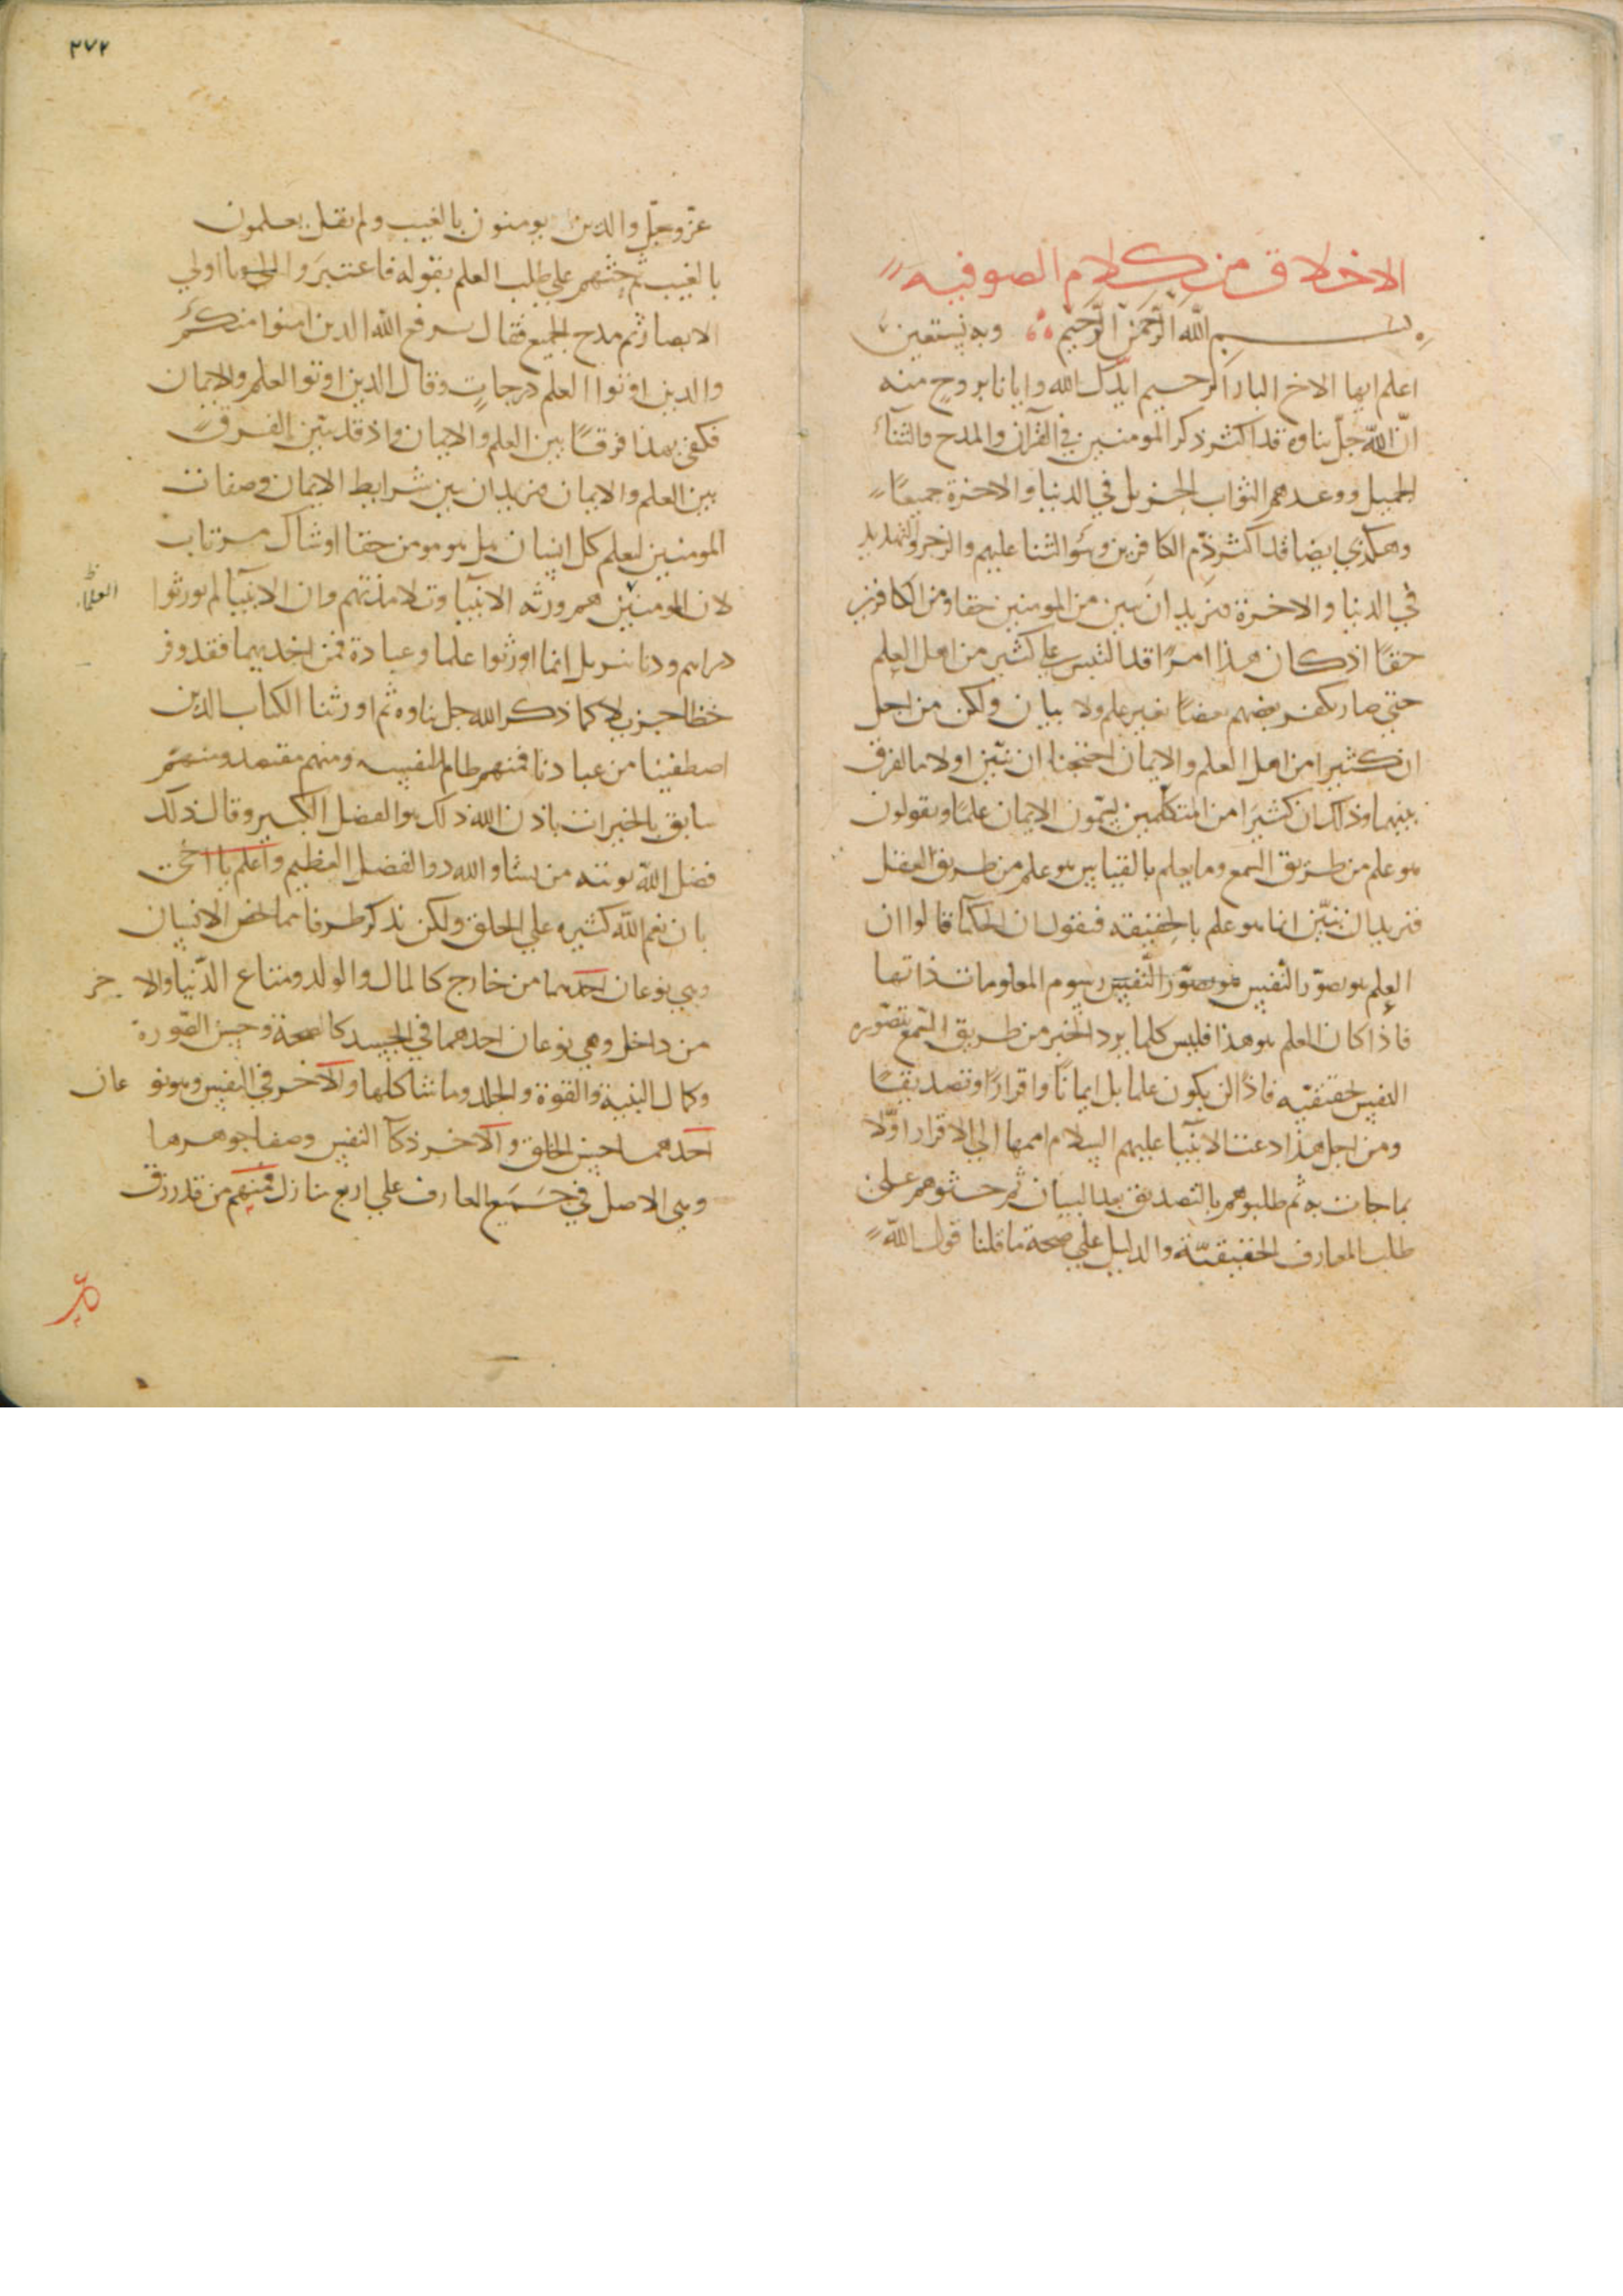 الاخلاق من كلام الصوفيه
بسم الله الرحمن الرحيم وبه نستعين
اعلم ايها الاخ البار الرحيم ايدك الله وايانا بروح منه
ان الله جل ثناوه قد اكثر ذكر المومنين في القرآن والمدح والثناء
الجميل ووعدهم الثواب الجزيل في الدنيا والاخرة جميعًا
وهكذي ايضا قد اكثر ذم الكافرين وسوء الثنا عليهم والزجر والتهديد
في الدنيا والاخرة فنريد ان نبين من المومنين حقا ومن الكافرين
حقًا اذ كان هذا امرًا قد التبس على كثير من اهل العلم
حتي صار يكفر بعضهم بعضًا بغير علم ولا بيان ولكن من اجل
ان كثيرا من اهل العلم والايمان احتجنا ان نبين اولا ما الفرق
بينهما وذلك ان كثيرًا من المتكلمين يسمون الايمان علمًا ويقولون
هو علم من طريق السمع وما يعلم بالقياس هو علم من طريق العقل
فنريد ان نبيّن انما هو علم بالحقيقه فنقول ان الحكمآ قالوا ان
العلم هو تصوّر النفس رسوم المعلومات ذاتها
فاذا كان العلم هو هذا فليس كلما يرد الخبر من طريق السمع تتصوره
النفس بحقيقته فاذًا لن يكون علما بل ايمانًا واقرارًا وتصديقًا
ومن اجل هذا دعت الانبيا عليهم السلام اممها الي الاقرار اوّلًا
بما جات به ثم طلبوهم بالتصديق بعد البيان ثم حثوهم علي
طلب المعارف الحقيقيّة والدليل علي صحة ما قلنا قول الله
٢٧٢
عزّ وجلّ والذين يومنون بالغيب ولم يقل يعلمون
بالغيب ثم حثهم علي طلب العلم بقوله فاعتبروا يا اولي
الابصار ثم مدح الجميع فقال يرفع الله الذين امنوا منكم
والذين اوتوا العلم درجاتٍ وقال الذين اوتوا العلم والايمان
فكفي بهذا فرقًا بين العلم والايمان واذ قد تبين الفرق
بين العلم والايمان فنريد ان نبين شرايط الايمان وصفات
المومنين ليعلم كل انسان هل هو مومن حقا او شاك مرتاب
لان المومنين هم ورثه الانبيآ وتلامذتهم وان الانبيآ لم يورثوا
العلمآ
دراهم ودنانير بل انما اورثوا علما وعبادة فمن اخذ بهما فقد وفر
حظا جزيلا كما ذكر الله جل ثناوه ثم اورثنا الكتاب الذين
اصطفينا من عبادنا فمنهم ظالم لنفسه ومنهم مقتصد ومنهم
سابق بالخيرات باذن الله ذلك هو الفضل الكبير وقال ذلك
فضل الله يوتيه من يشا والله ذو الفضل العظيم واعلم يا اخي
بان نعم الله كثيره علي الخلق ولكن نذكر طرفا مما يخص الانسان
وهي نوعان احدهما من خارج كالمال والولد ومتاع الدنيا والاخر
من داخل وهي نوعان احدهما في الجسد كالصحة وحسن الصورة
وكمال البنية والقوة والجلد وما شاكلها والآخر في النفس وهو نوعان
احدهما حسن الخلق والآخر ذكآ النفس وصفا جوهرها
وهي الاصل في جميع المعارف علي اربع منازل فمنهم من قد رزق